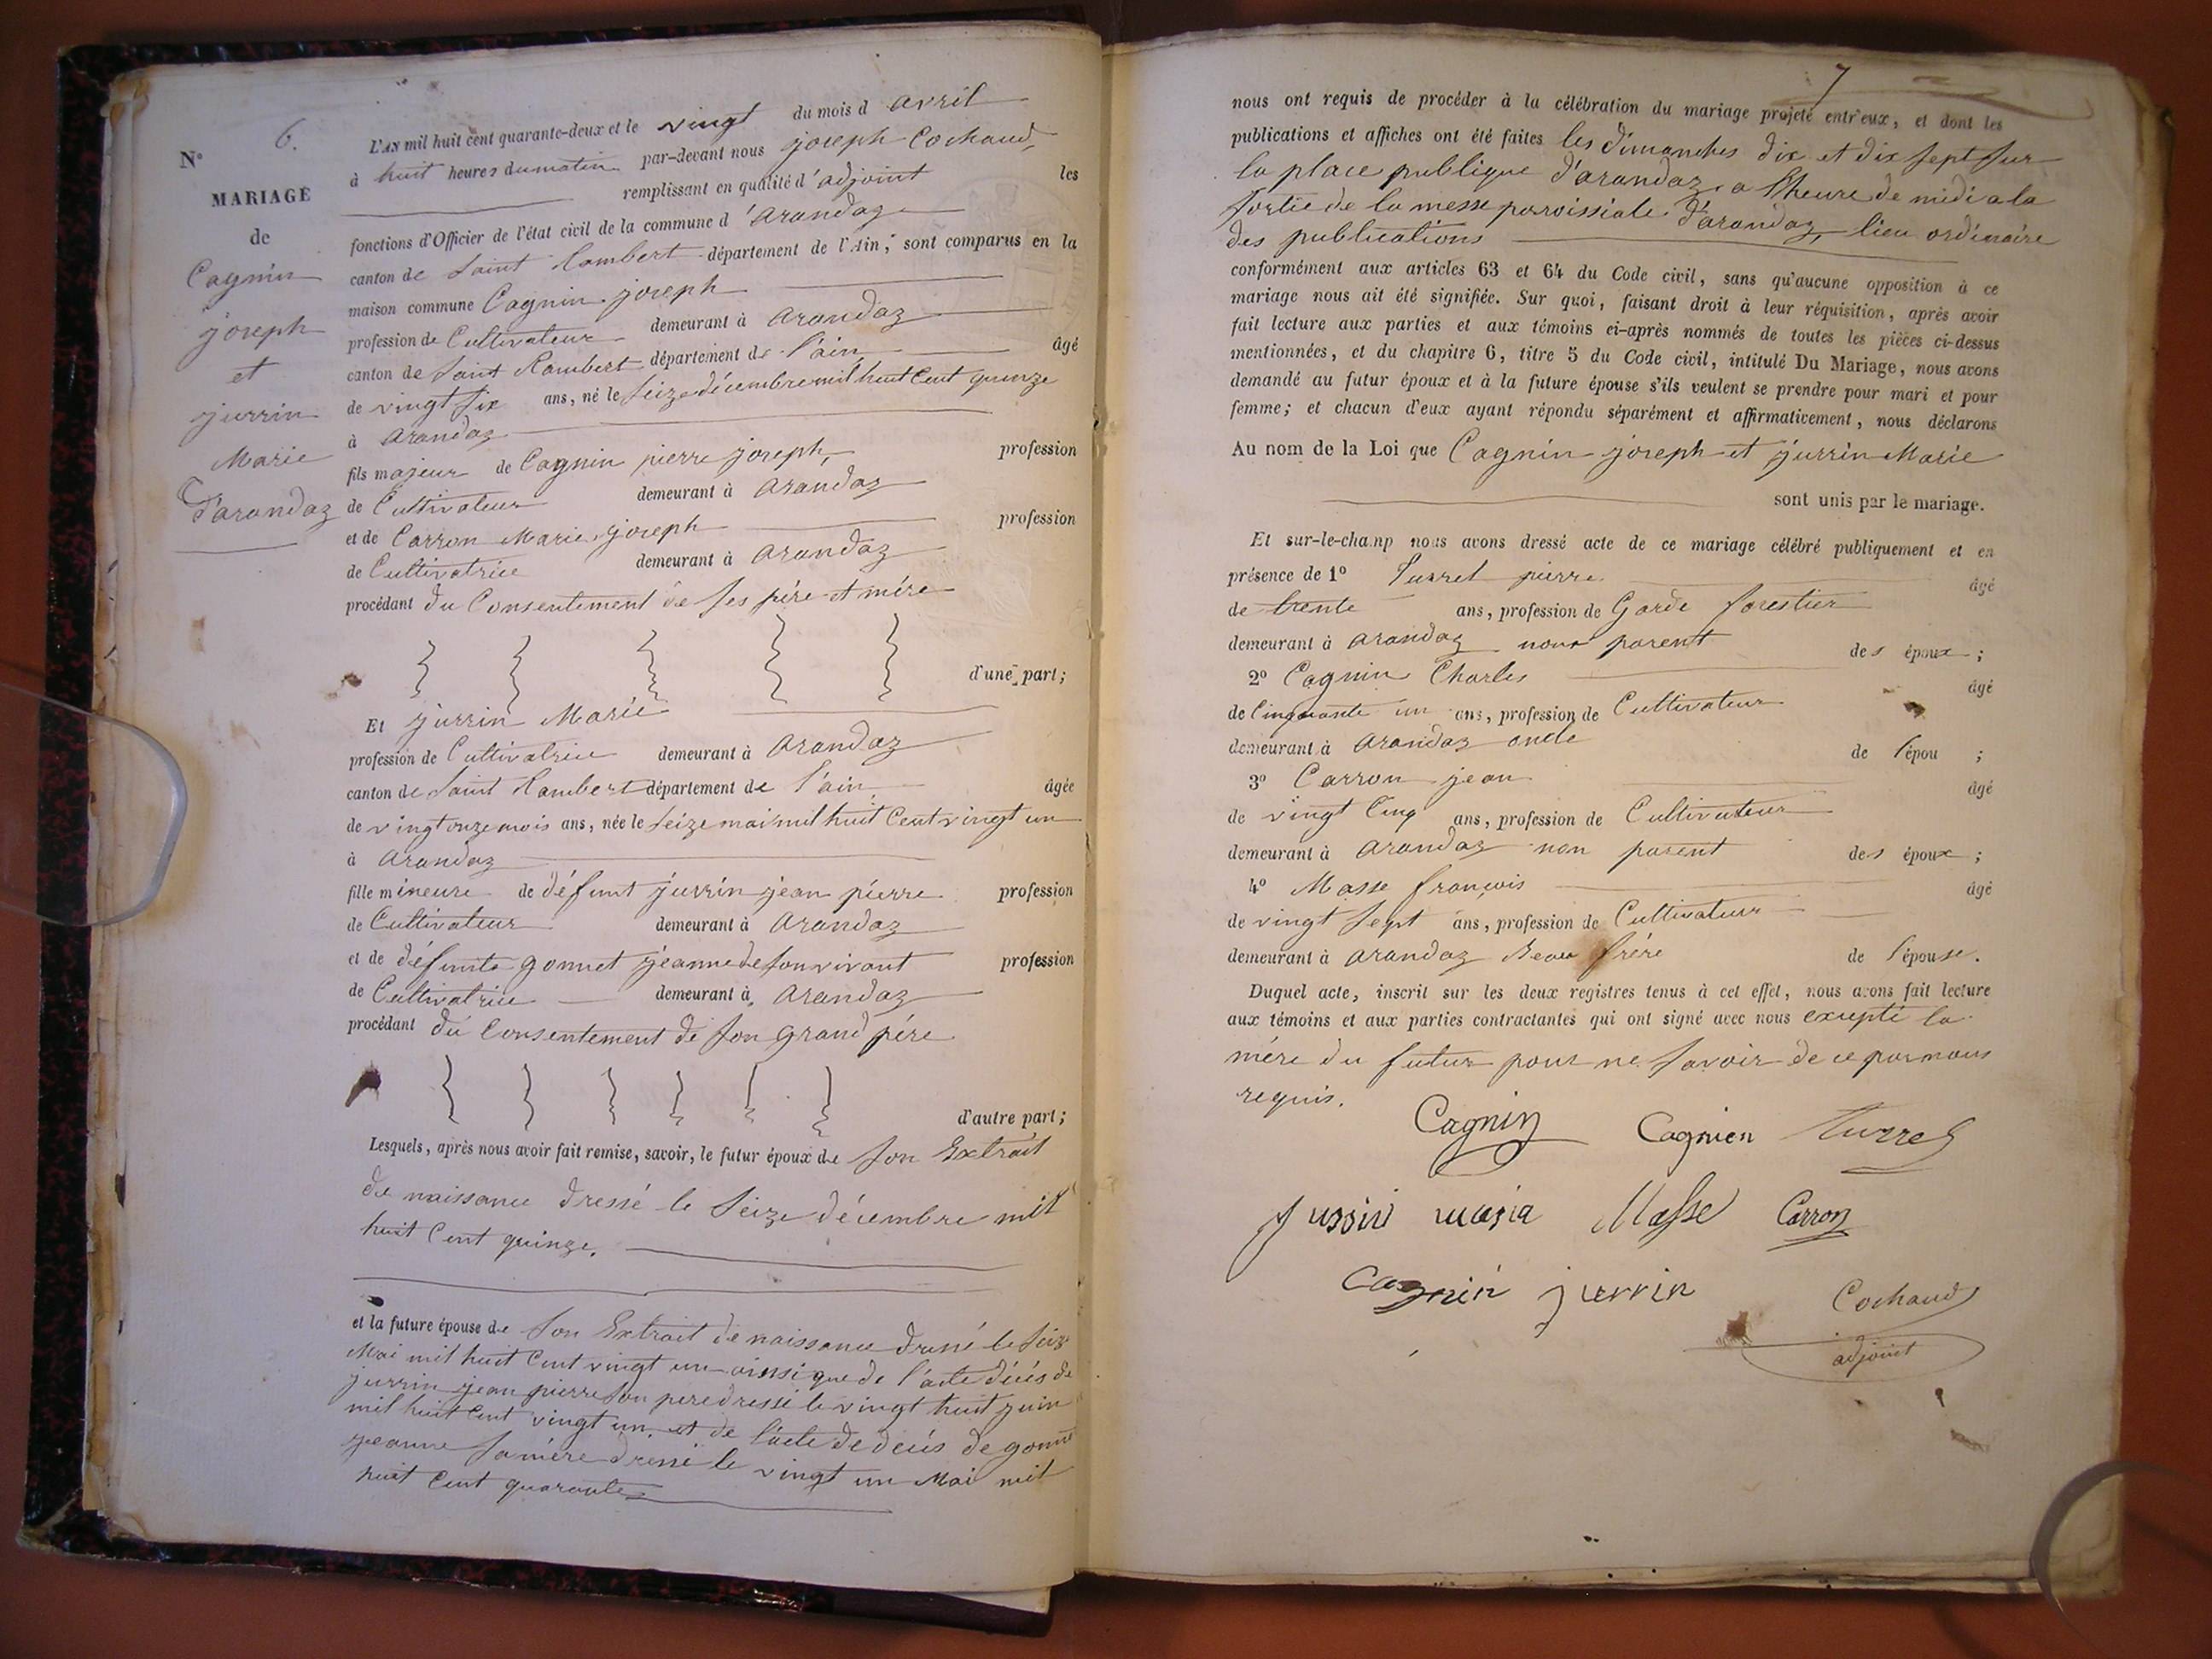 N° 6.
MARIAGE
de
Cagnin
joseph
et
jurrin
Marie
D'arandaz
L'AN mil huit cent quarante-deux et le vingt du mois d avril
à huit heures du matin par-devant nous joseph Cochaud,
remplissant en qualité d'adjoint les
fonctions d'Officier de l'état civil de la commune d'arandaz
canton de Saint Rambert département de l'Ain, sont comparus en la
maison commune Cagnin joseph
profession de Cultivateur demeurant à arandaz
canton de Saint Rambert département de l'ain âgé
de vingt six ans, né le seize décembre mil huit Cent quinze
à arandaz
fils majeur de Cagnin pierre joseph, profession
de Cultivateur demeurant à arandaz
et de Carron Marie joseph profession
de Cultivatrice demeurant à arandaz
procédant du Consentement de ses pére et mére
d'une part;
Et jurrin Marie
profession de Cultivatrice demeurant à arandaz
canton de Saint Rambert département de l'ain âgée
de vingt onze mois ans, née le seize mai mil huit Cent vingt un
à arandaz
fille mineure de défunt jurrin jean pierre profession
de Cultivateur demeurant à arandaz
et de défunte gonnet jeanne de son vivant profession
de Cultivatrice demeurant à arandaz
procédant du Consentement de son grand pére
d'autre part;
Lesquels, après nous avoir fait remise, savoir, le futur époux de son Extrait
de naissance dressé le seize décembre mil
huit Cent quinze.
et la future épouse de son Extrait de naissance dressé le seize
Mai mil huit Cent vingt un ainsi que de l'acte décés de
jurrin jean pierre son pere dressé le vingt huit juin
mil huit Cent vingt un. et de l'acte de decés de gonnet
jeanne sa mère dressé le vingt un Mai mil
huit Cent quarante
7
nous ont requis de procéder à la célébration du mariage projeté entr'eux, et dont les
publications et affiches ont été faites les dimanches dix et dix sept sur
la place publique d'arandaz, a l'heure de midi a la
sortie de la messe paroissiale d'arandaz, lieu ordinaire
des publications
conformément aux articles 63 et 64 du Code civil, sans qu'aucune opposition à ce
mariage nous ait été signifiée. Sur quoi, faisant droit à leur réquisition, après avoir
fait lecture aux parties et aux témoins ci-après nommés de toutes les pièces ci-dessus
mentionnées, et du chapitre 6, titre 5 du Code civil, intitulé Du Mariage, nous avons
demandé au futur époux et à la future épouse s'ils veulent se prendre pour mari et pour
femme; et chacun d'eux ayant répondu séparément et affirmativement, nous déclarons
Au nom de la Loi que Cagnin joseph et jurrin Marie
sont unis par le mariage.
Et sur-le-champ nous avons dressé acte de ce mariage célébré publiquement et en
présence de 1° Turrel pierre âgé
de trente ans, profession de Garde forestier
demeurant à arandaz non parent des époux;
2° Cagnin Charles âgé
de Cinquante un ans, profession de Cultivateur
demeurant à arandaz oncle de l'épou ;
3° Carron jean âgé
de vingt Cinq ans, profession de Cultivateur
demeurant à arandaz non parent des époux;
4° Masse françois âgé
de vingt sept ans, profession de Cultivateur
demeurant à arandaz Beau frére de l'épouse.
Duquel acte, inscrit sur les deux registres tenus à cet effet, nous avons fait lecture
aux témoins et aux parties contractantes qui ont signé avec nous excepté la
mére du futur pour ne savoir de ce par nous
requis.
Cagnin Cagnien Turrel
jussin maria Masse Carron
Cagnin jurrin Cochaud
adjoint